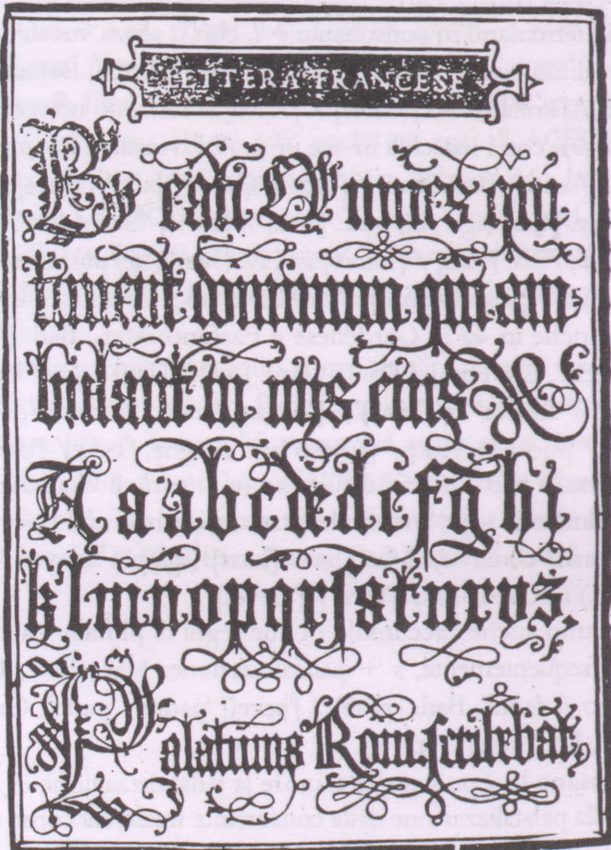 LETTERA FRANCESE
Beati Omnes qui
timent dominum, qui am,
bulant in uijs eius
A a a b c d
k l m n o p q r s
Palatinus Romę scribebat